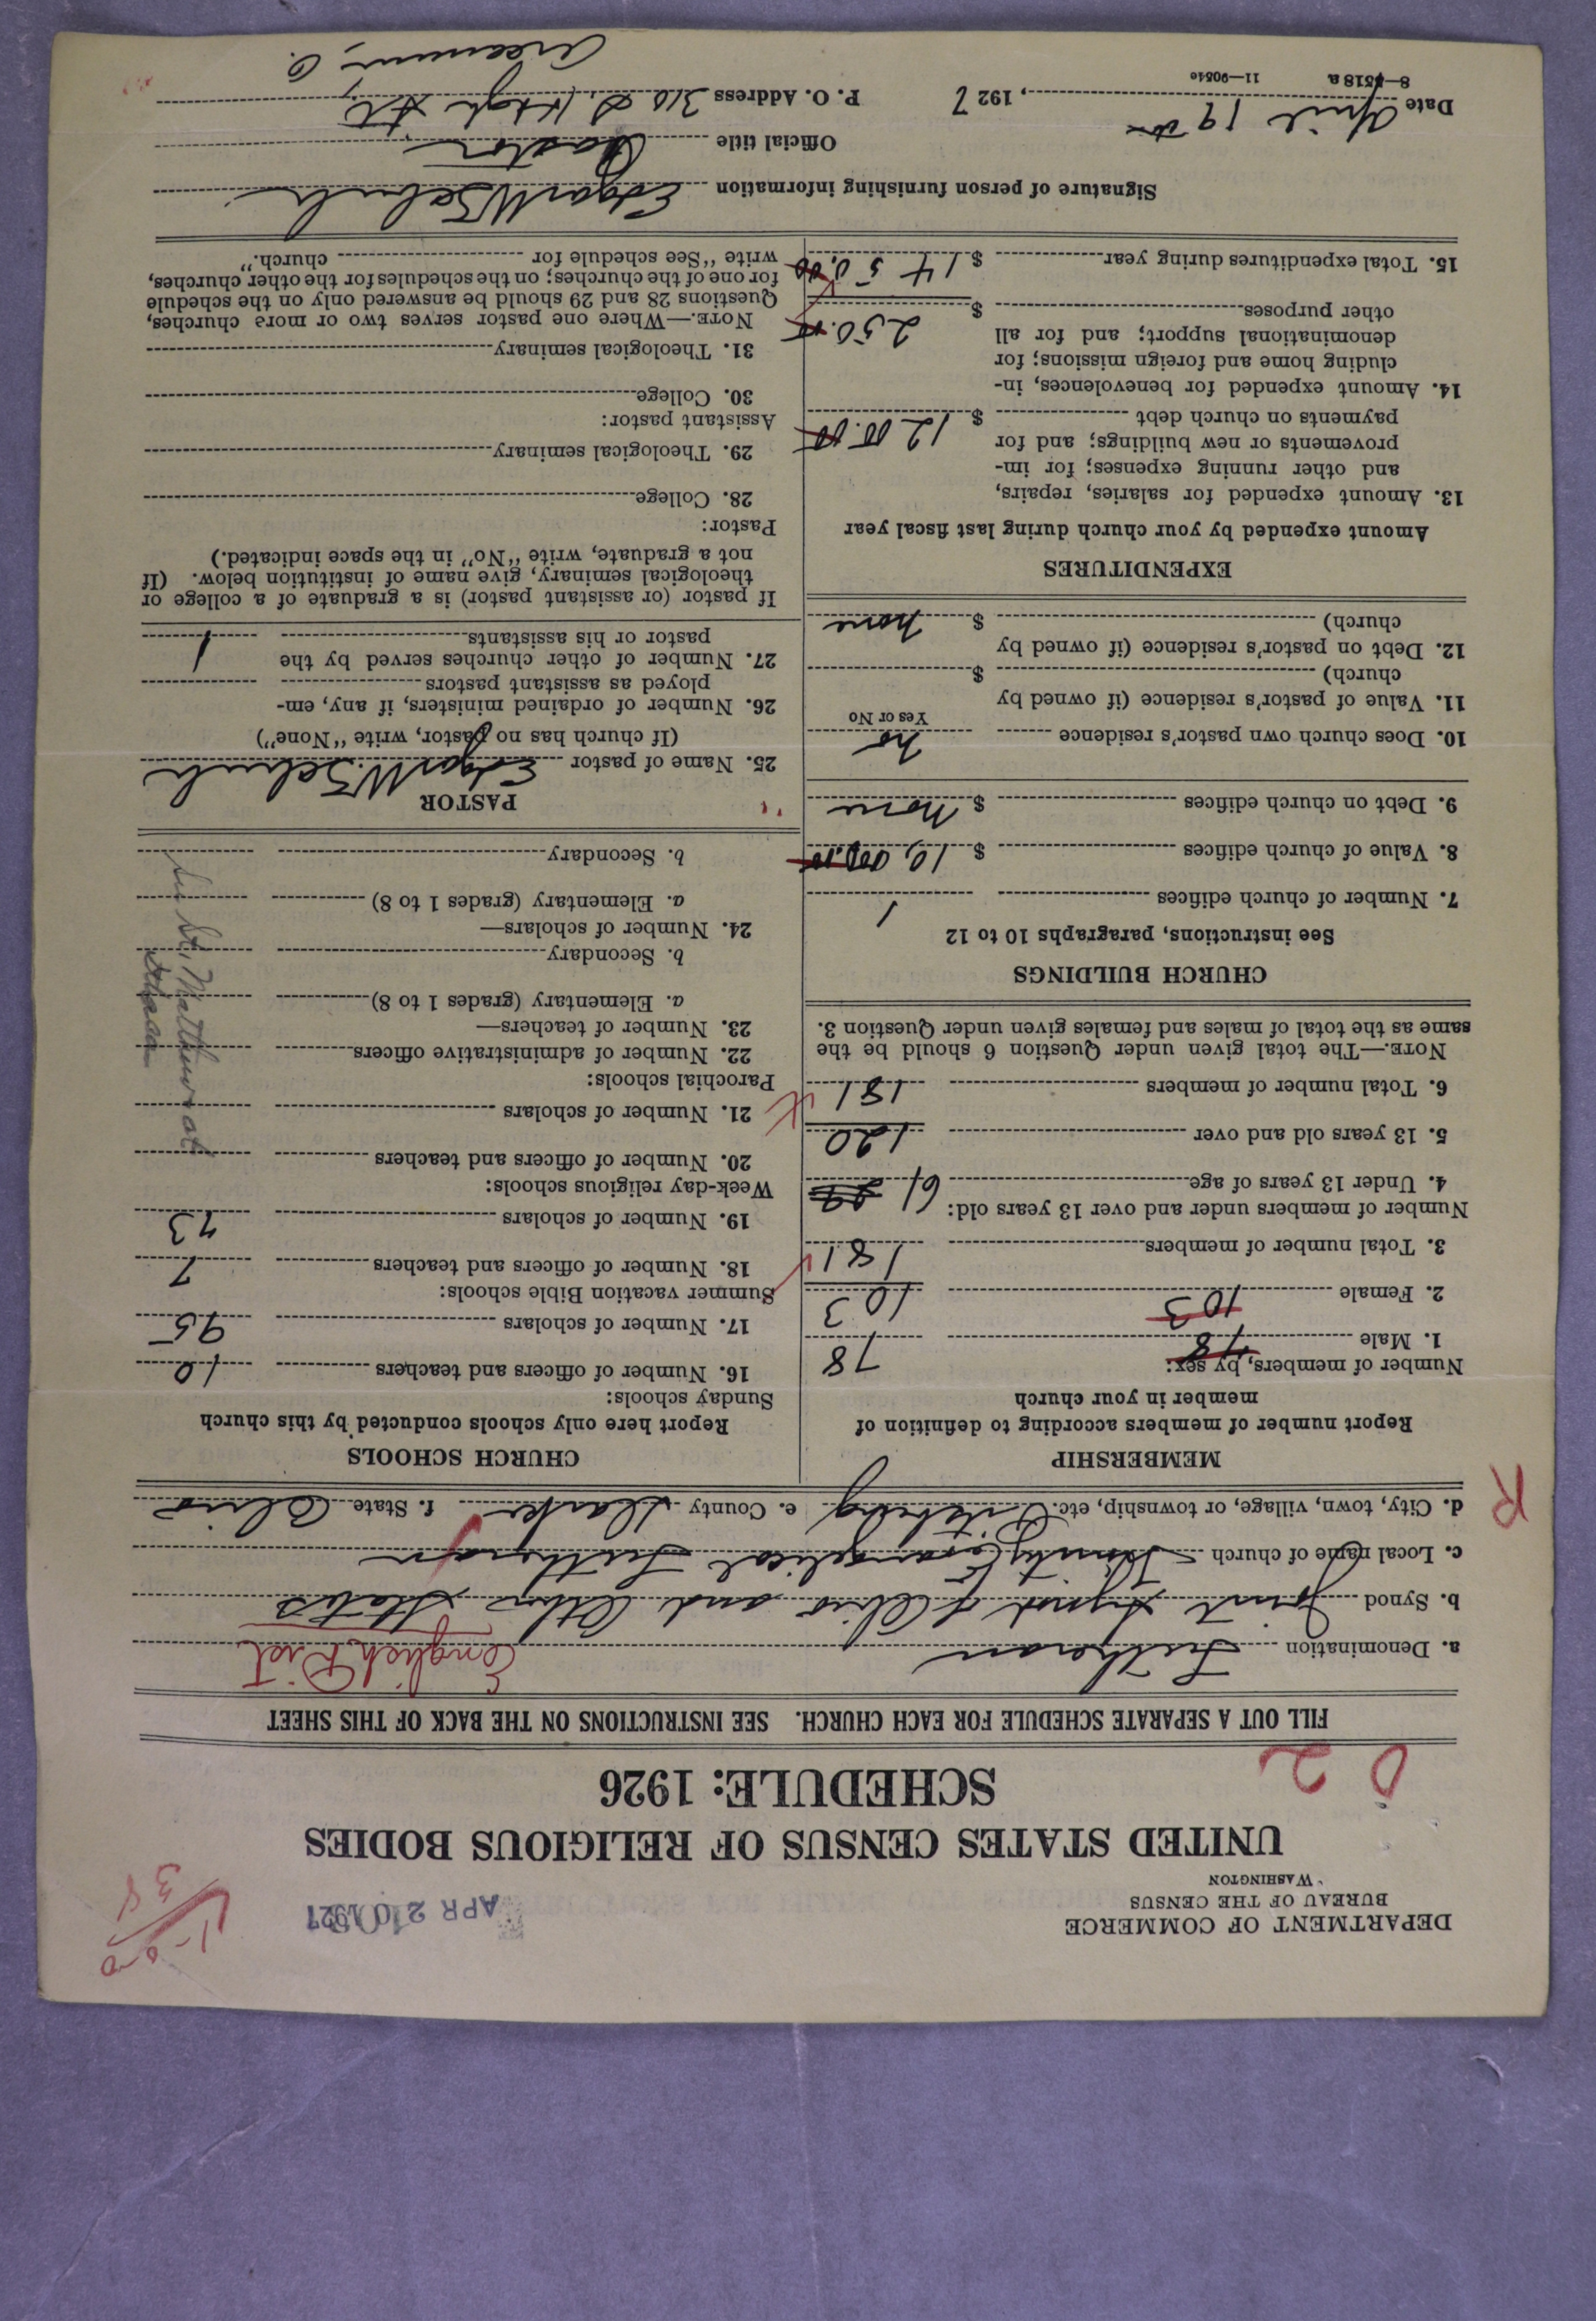 DEPARTMENT OF COMMERCE
BUREAU OF THE CENSUS
WASHINGTON
APR 20 1927
UNITED STATES CENSUS OF RELIGIOUS BODIES
SCHEDULE: 1926
FILL OUT A SEPARATE SCHEDULE FOR EACH CHURCH. SEE INSTRUCTIONS ON THE BACK OF THIS SHEET
a. Denomination Lutheran English Dist
b. Synod Joint Synod of Ohio and Other States
c. Local name of church Trinity Evangelical Lutheran
d. City, town, village, or township, etc. Pitsburg e. County Darke f. State Ohio
R
MEMBERSHIP
Report number of members according to definition of
member in your church
Number of members, by sex:
1. Male 78 78
2. Female 103 103
3. Total number of members 181
Number of members under and over 13 years old:
4. Under 13 years of age 61
5. 13 years old and over 120
6. Total number of members 181
NOTE.—The total given under Question 6 should be the
same as the total of males and females given under Question 3.
CHURCH BUILDINGS
See instructions, paragraphs 10 to 12
7. Number of church edifices 1
8. Value of church edifices $ 10,000.00
9. Debt on church edifices $ none
10. Does church own pastor's residence no
Yes or No
11. Value of pastor's residence (if owned by
church) $
12. Debt on pastor's residence (if owned by
church) $ none
EXPENDITURES
Amount expended by your church during last fiscal year
13. Amount expended for salaries, repairs,
and other running expenses; for im-
provements or new buildings; and for
payments on church debt $ 1200.00
14. Amount expended for benevolences, in-
cluding home and foreign missions; for
denominational support; and for all
other purposes $ 250.00
15. Total expenditures during year $ 1450.00
CHURCH SCHOOLS
Report here only schools conducted by this church
Sunday schools:
16. Number of officers and teachers 10
17. Number of scholars 95
Summer vacation Bible schools:
18. Number of officers and teachers 7
19. Number of scholars 73
Week-day religious schools:
20. Number of officers and teachers
21. Number of scholars
Parochial schools:
22. Number of administrative officers
23. Number of teachers—
a. Elementary (grades 1 to 8)
b. Secondary
24. Number of scholars—
a. Elementary (grades 1 to 8)
b. Secondary
St. Matthew at
PASTOR
25. Name of pastor Edgar W.
(If church has no pastor, write "None")
26. Number of ordained ministers, if any, em-
ployed as assistant pastors
27. Number of other churches served by the
pastor or his assistants 1
If pastor (or assistant pastor) is a graduate of a college or
theological seminary, give name of institution below. (If
not a graduate, write "No" in the space indicated.)
Pastor:
28. College
29. Theological seminary
Assistant pastor:
30. College
31. Theological seminary
NOTE.—Where one pastor serves two or more churches,
Questions 28 and 29 should be answered only on the schedule
for one of the churches; on the schedules for the other churches,
write "See schedule for church."
Signature of person furnishing information Edgar W.
Official title Pastor
Date April 19th, 1927 P. O. Address 310 S. High St.
Arcanum, O.
8—4518a 11—9051c